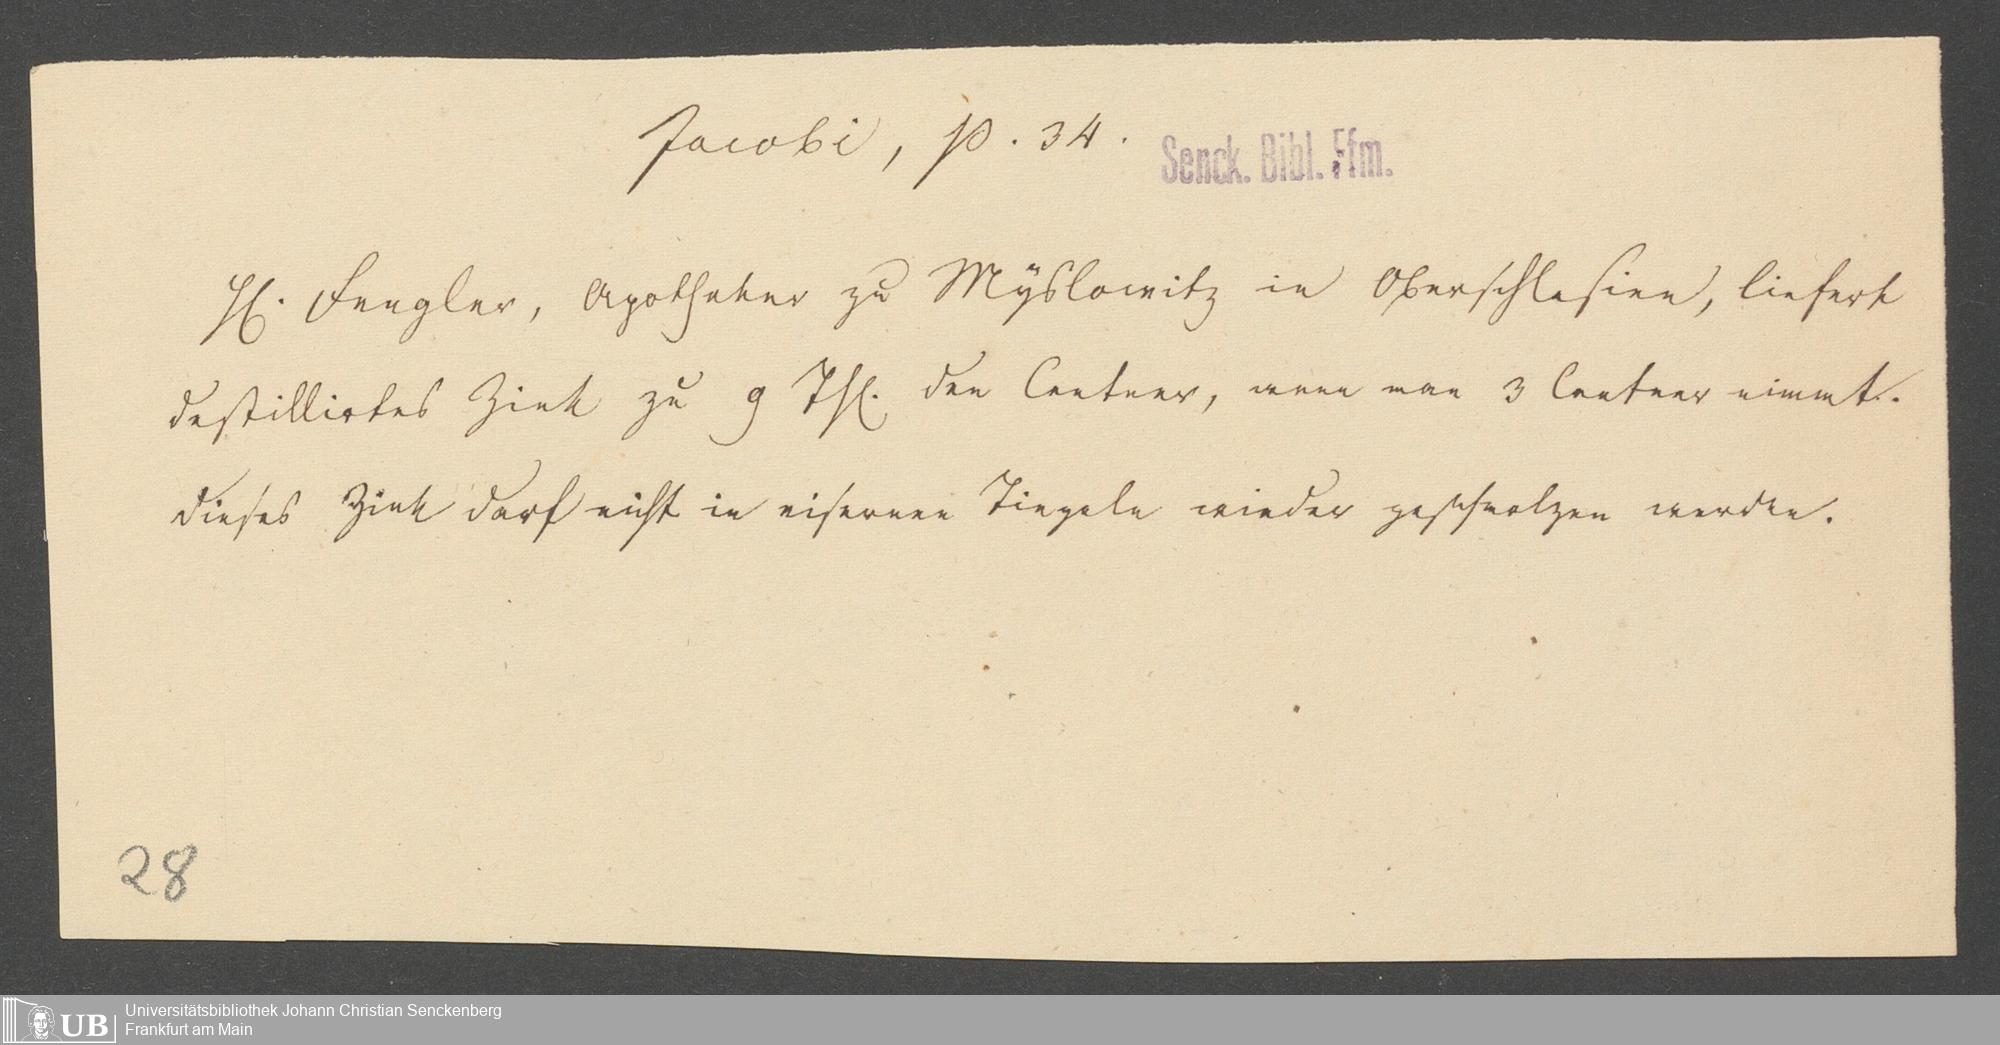 Jacobi, p. 34.
Senck. Bibl. Ffm.
H. Fengler, Apotheker zu Mÿslowitz in Oberschlesien, liefert
destillirtes Zink zu 9 Thl. den Centner, wenn man 3 Centner nimmt.
Dieses Zink darf nicht in eisernen Tiegeln wieder geschmolzen werden.
28
UB
Universitätsbibliothek Johann Christian Senckenberg
Frankfurt am Main